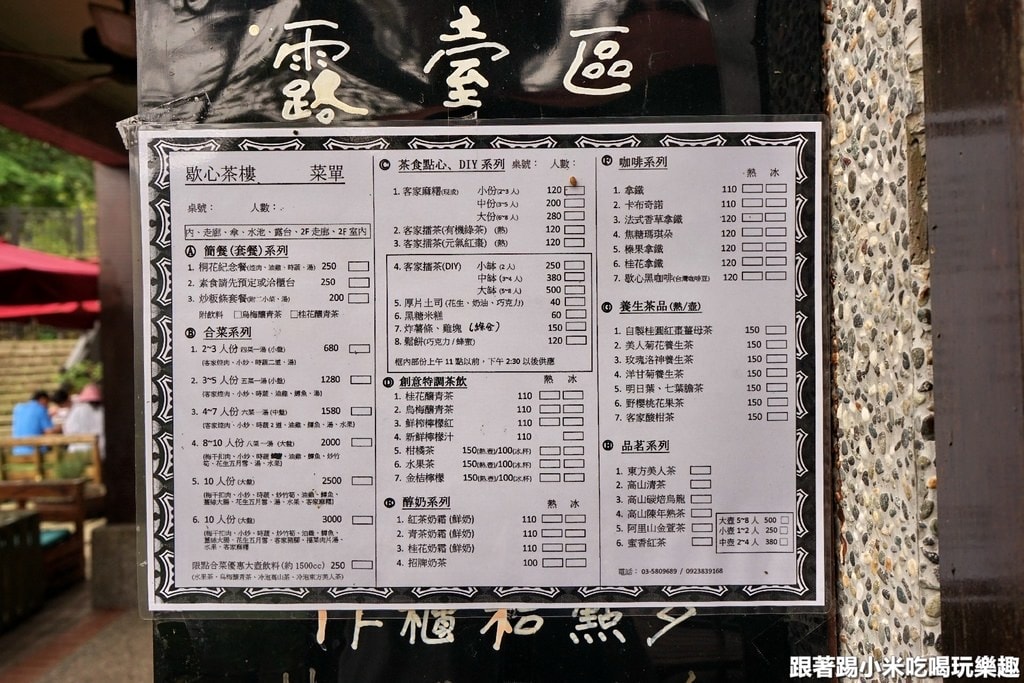 露臺區
歇心茶樓 菜單
桌號： 人數：
內、走廊、傘、水池、露台、2F走廊、2F室內
A 簡餐(套餐)系列
1. 桐花紀念餐(焢肉、油雞、時蔬、湯) 250
2. 素食請先預定或洽櫃台 250
3. 炒粄條套餐(附二小菜、湯) 200
附飲料 □烏梅釀青茶 □桂花釀青茶
B 合菜系列
1. 2~3 人份 四菜一湯(小盤) 680
(客家焢肉、小炒、時蔬二道、湯)
2. 3~5 人份 五菜一湯(小盤) 1280
(客家焢肉、小炒、時蔬、油雞、鱒魚、湯)
3. 4~7 人份 六菜一湯(中盤) 1580
(客家焢肉、小炒、時蔬2道、油雞、鱒魚、湯、水果)
4. 8~10 人份 八菜一湯(大盤) 2000
(梅干扣肉、小炒、時蔬、油雞、鱒魚、炒竹
筍、花生五月雪、湯、水果)
5. 10 人份(大盤) 2500
(梅干扣肉、小炒、時蔬、炒竹筍、油雞、鱒魚、
薑絲大腸、花生五月雪、湯、水果、客家麻糬)
6. 10 人份(大盤) 3000
(梅干扣肉、小炒、時蔬、炒竹筍、油雞、鱒魚、
薑絲大腸、花生五月雪、客家麻糬、福菜肉片湯、
水果、客家麻糬)
限點合菜優惠大壺飲料(約 1500cc) 250
(水果茶、烏梅釀青茶、冷泡高山茶、冷泡東方美人茶)
C 茶食點心、DIY 系列 桌號： 人數：
1. 客家麻糬(現煮) 小份(2~3 人) 120
中份(3~5 人) 200
大份(6~8 人) 280
2. 客家擂茶(有機綠茶) (熱) 120
3. 客家擂茶(元氣紅棗) (熱) 120
4. 客家擂茶(DIY) 小缽(2 人) 250
中缽(3~4 人) 380
大缽(5~8 人) 500
5. 厚片土司(花生、奶油、巧克力) 40
6. 黑糖米糕 60
7. 炸薯條、雞塊(綜合) 150
8. 鬆餅(巧克力/蜂蜜) 120
框內部份上午 11 點以前，下午 2:30 以後供應
D 創意特調茶飲 熱 冰
1. 桂花釀青茶 110
2. 烏梅釀青茶 110
3. 鮮榨檸檬紅 110
4. 新鮮檸檬汁 110
5. 柑橘茶 150(熱.壺)/100(冰.杯)
6. 水果茶 150(熱.壺)/100(冰.杯)
7. 金桔檸檬 150(熱.壺)/100(冰.杯)
E 醇奶系列 熱 冰
1. 紅茶奶霜(鮮奶) 110
2. 青茶奶霜(鮮奶) 110
3. 桂花奶霜(鮮奶) 110
4. 招牌奶茶 100
F 咖啡系列
熱 冰
1. 拿鐵 110
2. 卡布奇諾 110
3. 法式香草拿鐵 120
4. 焦糖瑪琪朵 120
5. 榛果拿鐵 120
6. 桂花拿鐵 120
7. 歇心黑咖啡(台灣咖啡豆) 120
G 養生茶品(熱/壺)
1. 自製桂圓紅棗薑母茶 150
2. 美人菊花養生茶 150
3. 玫瑰洛神養生茶 150
4. 洋甘菊養生茶 150
5. 明日葉、七葉膽茶 150
6. 野櫻桃花果茶 150
7. 客家酸柑茶 150
H 品茗系列
1. 東方美人茶
2. 高山清茶
3. 高山碳焙烏龍
4. 高山陳年熟茶
5. 阿里山金萱茶
6. 蜜香紅茶
大壺 5~8 人 500
小壺 1~2 人 250
中壺 2~4 人 380
電話： 03-5809689 / 0923839168
櫃和點
跟著踢小米吃喝玩樂趣